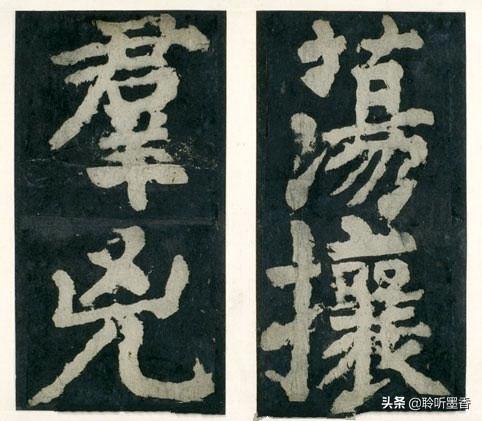 蕩攘
羣兇
头条 @聆听墨香